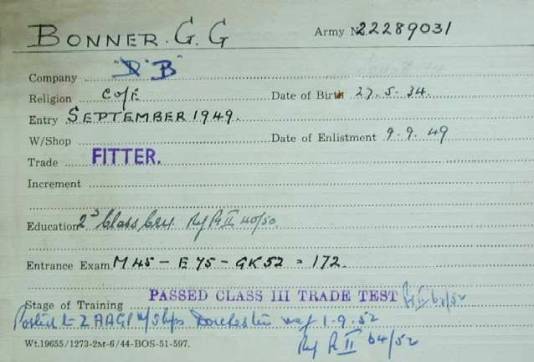 BONNER. G. G Army No 22289031
Company "D" B
Religion C of E Date of Birth 27.5.34.
Entry SEPTEMBER 1949.
W/Shop Date of Enlistment 9.9.49
Trade FITTER.
Increment
Education 2nd Class Cert Ref Pt II 40/50.
Entrance Exam M 45 - E 75 - GK 52 = 172.
Stage of Training PASSED CLASS III TRADE TEST
Posted to 2 AAGP W/Shops Dorchester wef 1.9.52
Ref Pt II 64/52
Wt.19655/1273-2M-6/44-BOS-51-597.